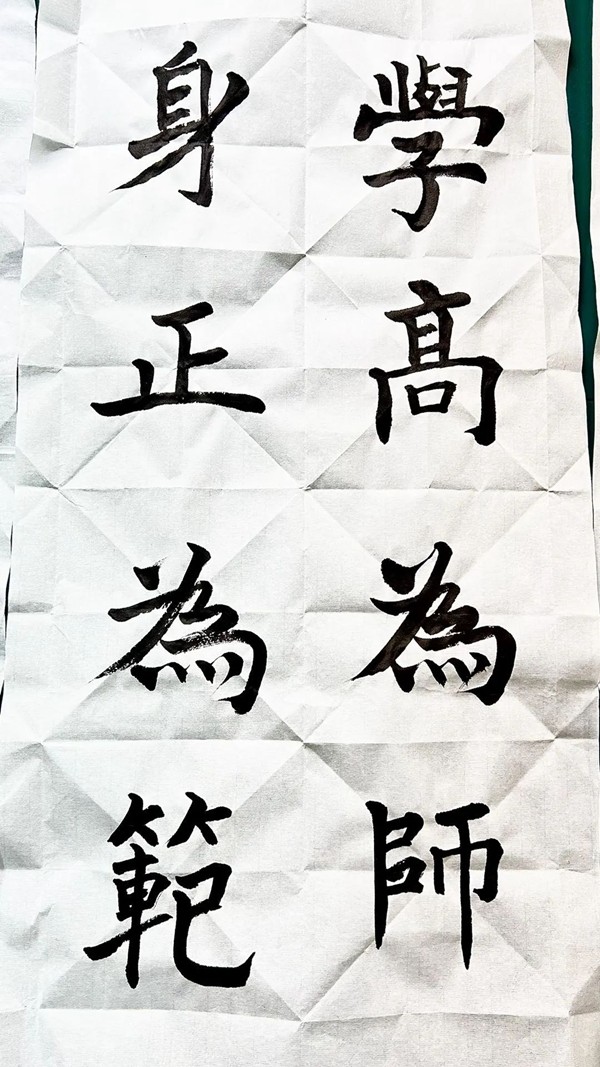 學髙為師
身正為範